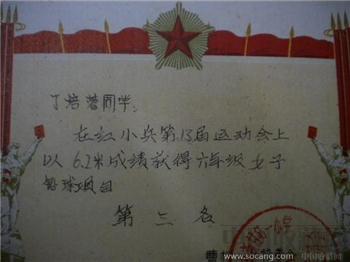 丁培蓉同学:
在红小兵第13届运动会上
以6.2米成绩获得六年级女子
铅球项目
第三名
www.socang.com